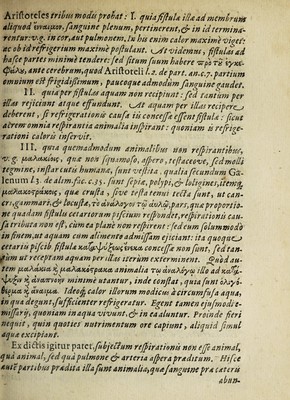 Aristoteles tribus modis probat: I. quia fistula illa ad membrum
aliquod ἔναιμον, sanguine plenum, pertinerent, & in id termina-
rentur: v.g. in cor aut pulmonem, in bis enim calor maximè viget:
ac ob id refrigerium maximè postulant. At videmus, fistulas ad
hasce partes minimè tendere: sed situm suum habere πρὸ τȣ͂ ἐγκε-
φάλȣ, ante cerebrum, quod Aristoteli l. 2. de part. an. c. 7. partium
omnium est frigidissimum, paucoque admodum sanguine gaudet.
II. quia per fistulas aquam non recipiunt: sed tantùm per
illas rejiciunt atque effundunt. At aquam per illas recipere
deberent, si refrigerationis causa iis concessa essent fistula: sicut
aërem omnia respirantia animalia inspirant: quoniam is refrige-
rationem calori inserit.
III. quia quemadmodum animalibus non respirantibus,
v.g. μαλακίοις, quæ non squamoso, aspero, testaceove, sed molli
tegmine, instar cutis humanæ, sunt vestita. qualia secundum Ga-
lenum l. 3. de alim. fac. c. 35. sunt sepia, polypi, & loligines, item
μαλακοστράκοις, quæ crusta, sive testa tenui tecta sunt, ut can-
cri, gammari, & locustæ, τὸ ἀνάλογον τȣ͂ αὐλȣ͂, pars, quæ proportio-
ne quadam fistulis cetariorum piscium respondet, respirationis cau-
sa tributa non est, cum ea planè non respirent: sed eum solummodo
in finem, ut aquam cum alimento admissam ejiciant: ita quoque
cetariis piscib. fistula καταψύξεως ἕνεκα concessa non sunt, sed tan-
tùm ut receptam aquam per illas iterùm exterminent. Quòd au-
tem μαλάκια ἢ μαλακόστρακα animalia τῷ ἀναλόγῳ illo ad κατά-
ψυξιν ἢ ἀναπνοὴν minimè utantur, inde constat, quia sunt ὀλιγό-
θερμα ἢ ἄναιμα. Ideoq́; calor illorum modicus à circumfusa aqua,
in qua degunt, sufficienter refrigeratur. Egent tamen ejusmodi e-
missariis, quoniam in aqua vivunt, & in ea aluntur. Proinde fieri
nequit, quin quoties nutrimentum ore capiunt, aliquid simul
aqua excipiant.
Ex dictis igitur patet, subjectum respirationis non esse animal,
quà animal, sed quà pulmone & arteria aspera præditum. Hisce
autē partibus prædita illa sunt animalia, quæ sanguine præ ceteris
abun-